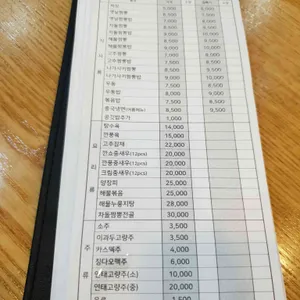 짜장 5,000 6,000
옛날짬뽕 6,500 7,500
차돌짬뽕 8,000 9,000
해물짬뽕 9,000 10,000
고추짬뽕 7,000 8,000
고추짬뽕밥 7,500 8,500
나가사끼짬뽕 8,500 9,500
나가사끼짬뽕밥 9,000 10,000
우동 6,500 7,500
우동밥 7,000 8,000
볶음밥 7,500 8,500
중국냉면(여름메뉴) 8,500 9,500
공깃밥추가 1,000
요리류
탕수육 14,000
깐풍육 15,000
고추잡채 22,000
깐쇼중새우(12pcs) 20,000
깐풍중새우(12pcs) 20,000
크림중새우(12pcs) 20,000
양장피 25,000
해물볶음 25,000
해물누룽지탕 28,000
차돌짬뽕전골 30,000
주류
소주 3,500
이과두고량주 3,500
카스맥주 4,000
칭다오맥주 6,000
연태고량주(소) 10,000
연태고량주(중) 20,000
음료 1,500